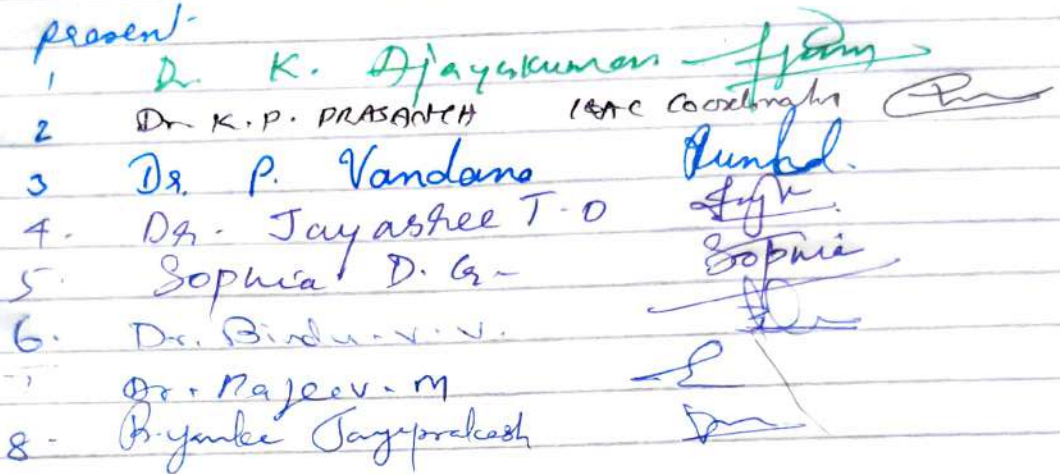 present
1 Dr. K. Ajayakumar
2 Dr. K. P. PRASANTH IQAC Coordinator
3 Dr. P. Vandana
4. Dr. Jayashree T.O
5. Sophia D. G. Sophia
6. Dr. Bindu. V. V.
7 Dr. Rajeev. M
8 - Priyanka Jayaprakash